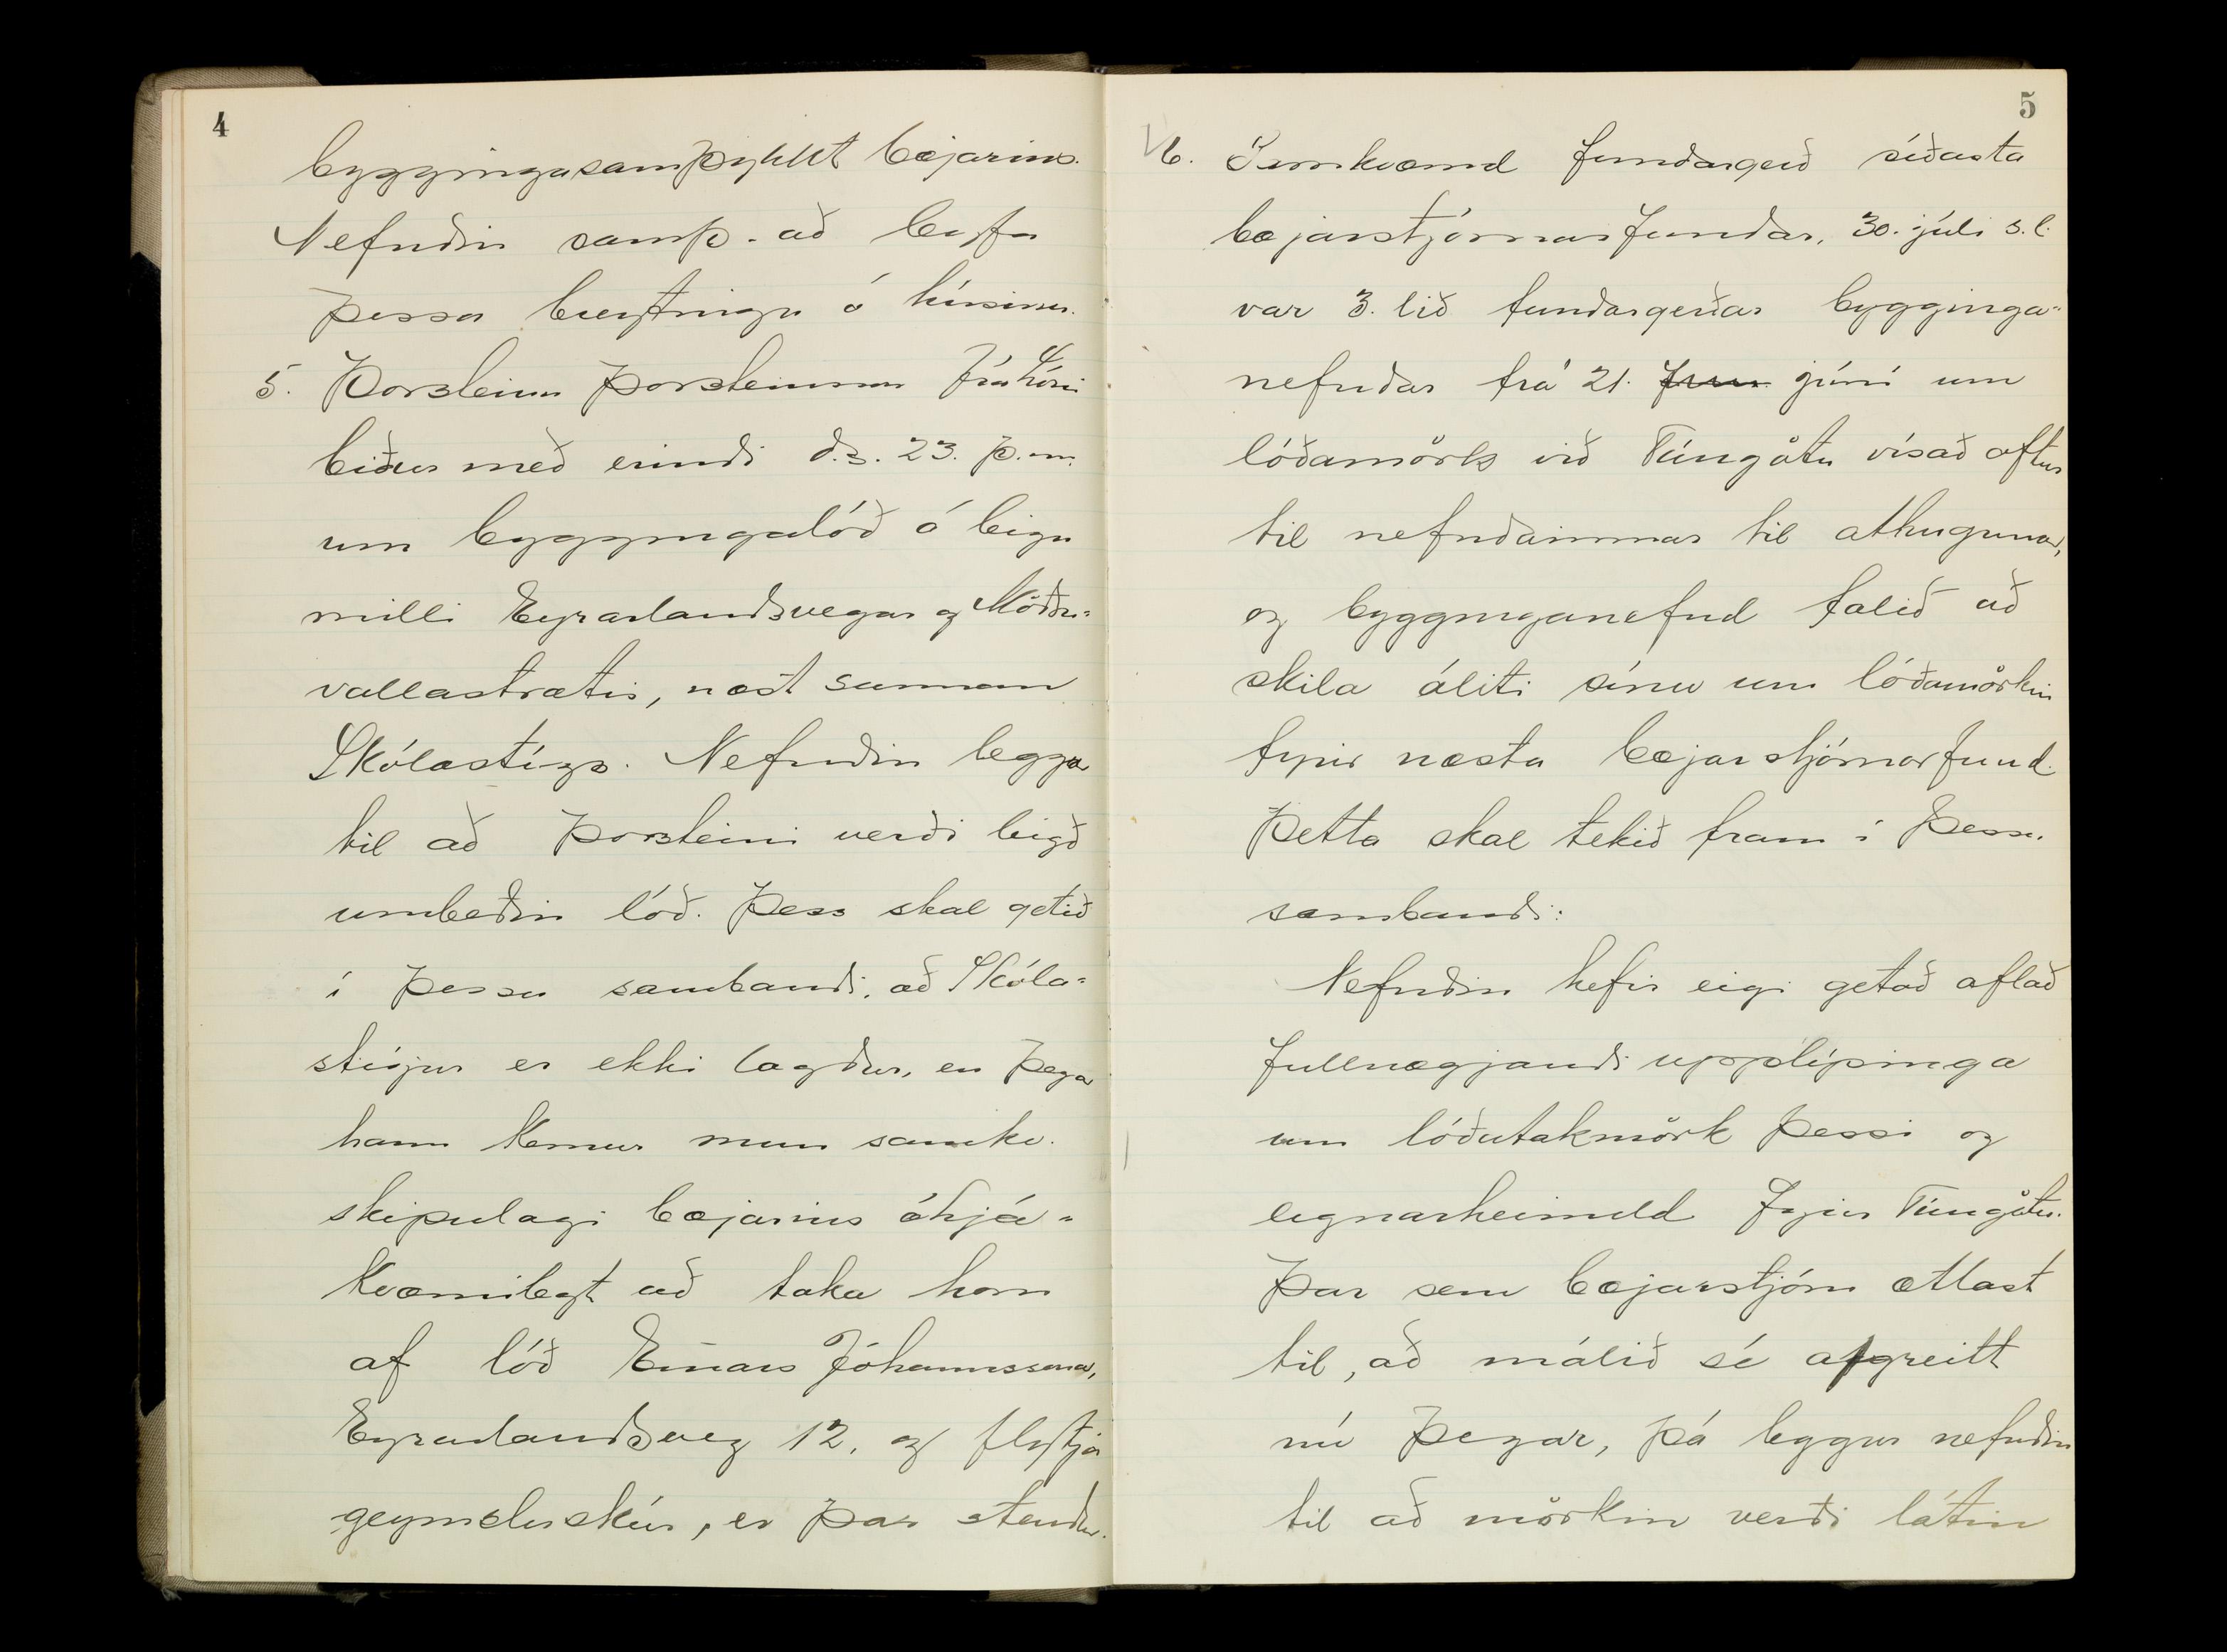 4
byggingasamþykkt bæjarins.
Nefndin samþ. að leyfa
þessa breytingu á húsinu.
5. Þorsteinn Þorsteinsson frá Lóni
biður með erindi d.s. 23. þ.m.
um byggingalóð á leigu
milli Eyrarlandsvegar og Möðru=
vallastrætis, næst sunnan
Skólastígs. Nefndin leggur
til að Þorsteini verði leigð
umbeðin lóð. Þess skal getið
í þessu sambandi, að Skóla=
stígur er ekki lagður, en þegar
hann kemur mun samkv.
skipulagi bæjarins óhjá=
kvæmilegt að taka horn
af lóð Einars Jóhannssonar,
Eyrarlandsveg 12, og flytja
geymsluskúr, er þar stendur.
5
6. Samkvæmd fundargerð síðasta
bæjarstjórnarfundar, 30. júlí s.l.
var 3. lið fundargerðar bygginga=
nefndar frá 21. júní um
lóðamörk við Túngötu vísað aftur
til nefndarinnar til athugunar,
og bygginganefnd falið að
skila áliti sínu um lóðamörkin
fyrir næsta bæjarstjórnarfund.
Þetta skal tekið fram í þessu
sambandi:
Nefndin hefir eigi getað aflað
fullnægjandi upplýsinga
um lóðatakmörk þessi og
eignarheimild fyrir Túngötu.
Þar sem bæjarstjórn ætlast
til, að málið sé afgreitt
nú þegar, þá leggur nefndin
til að mörkin verði látin